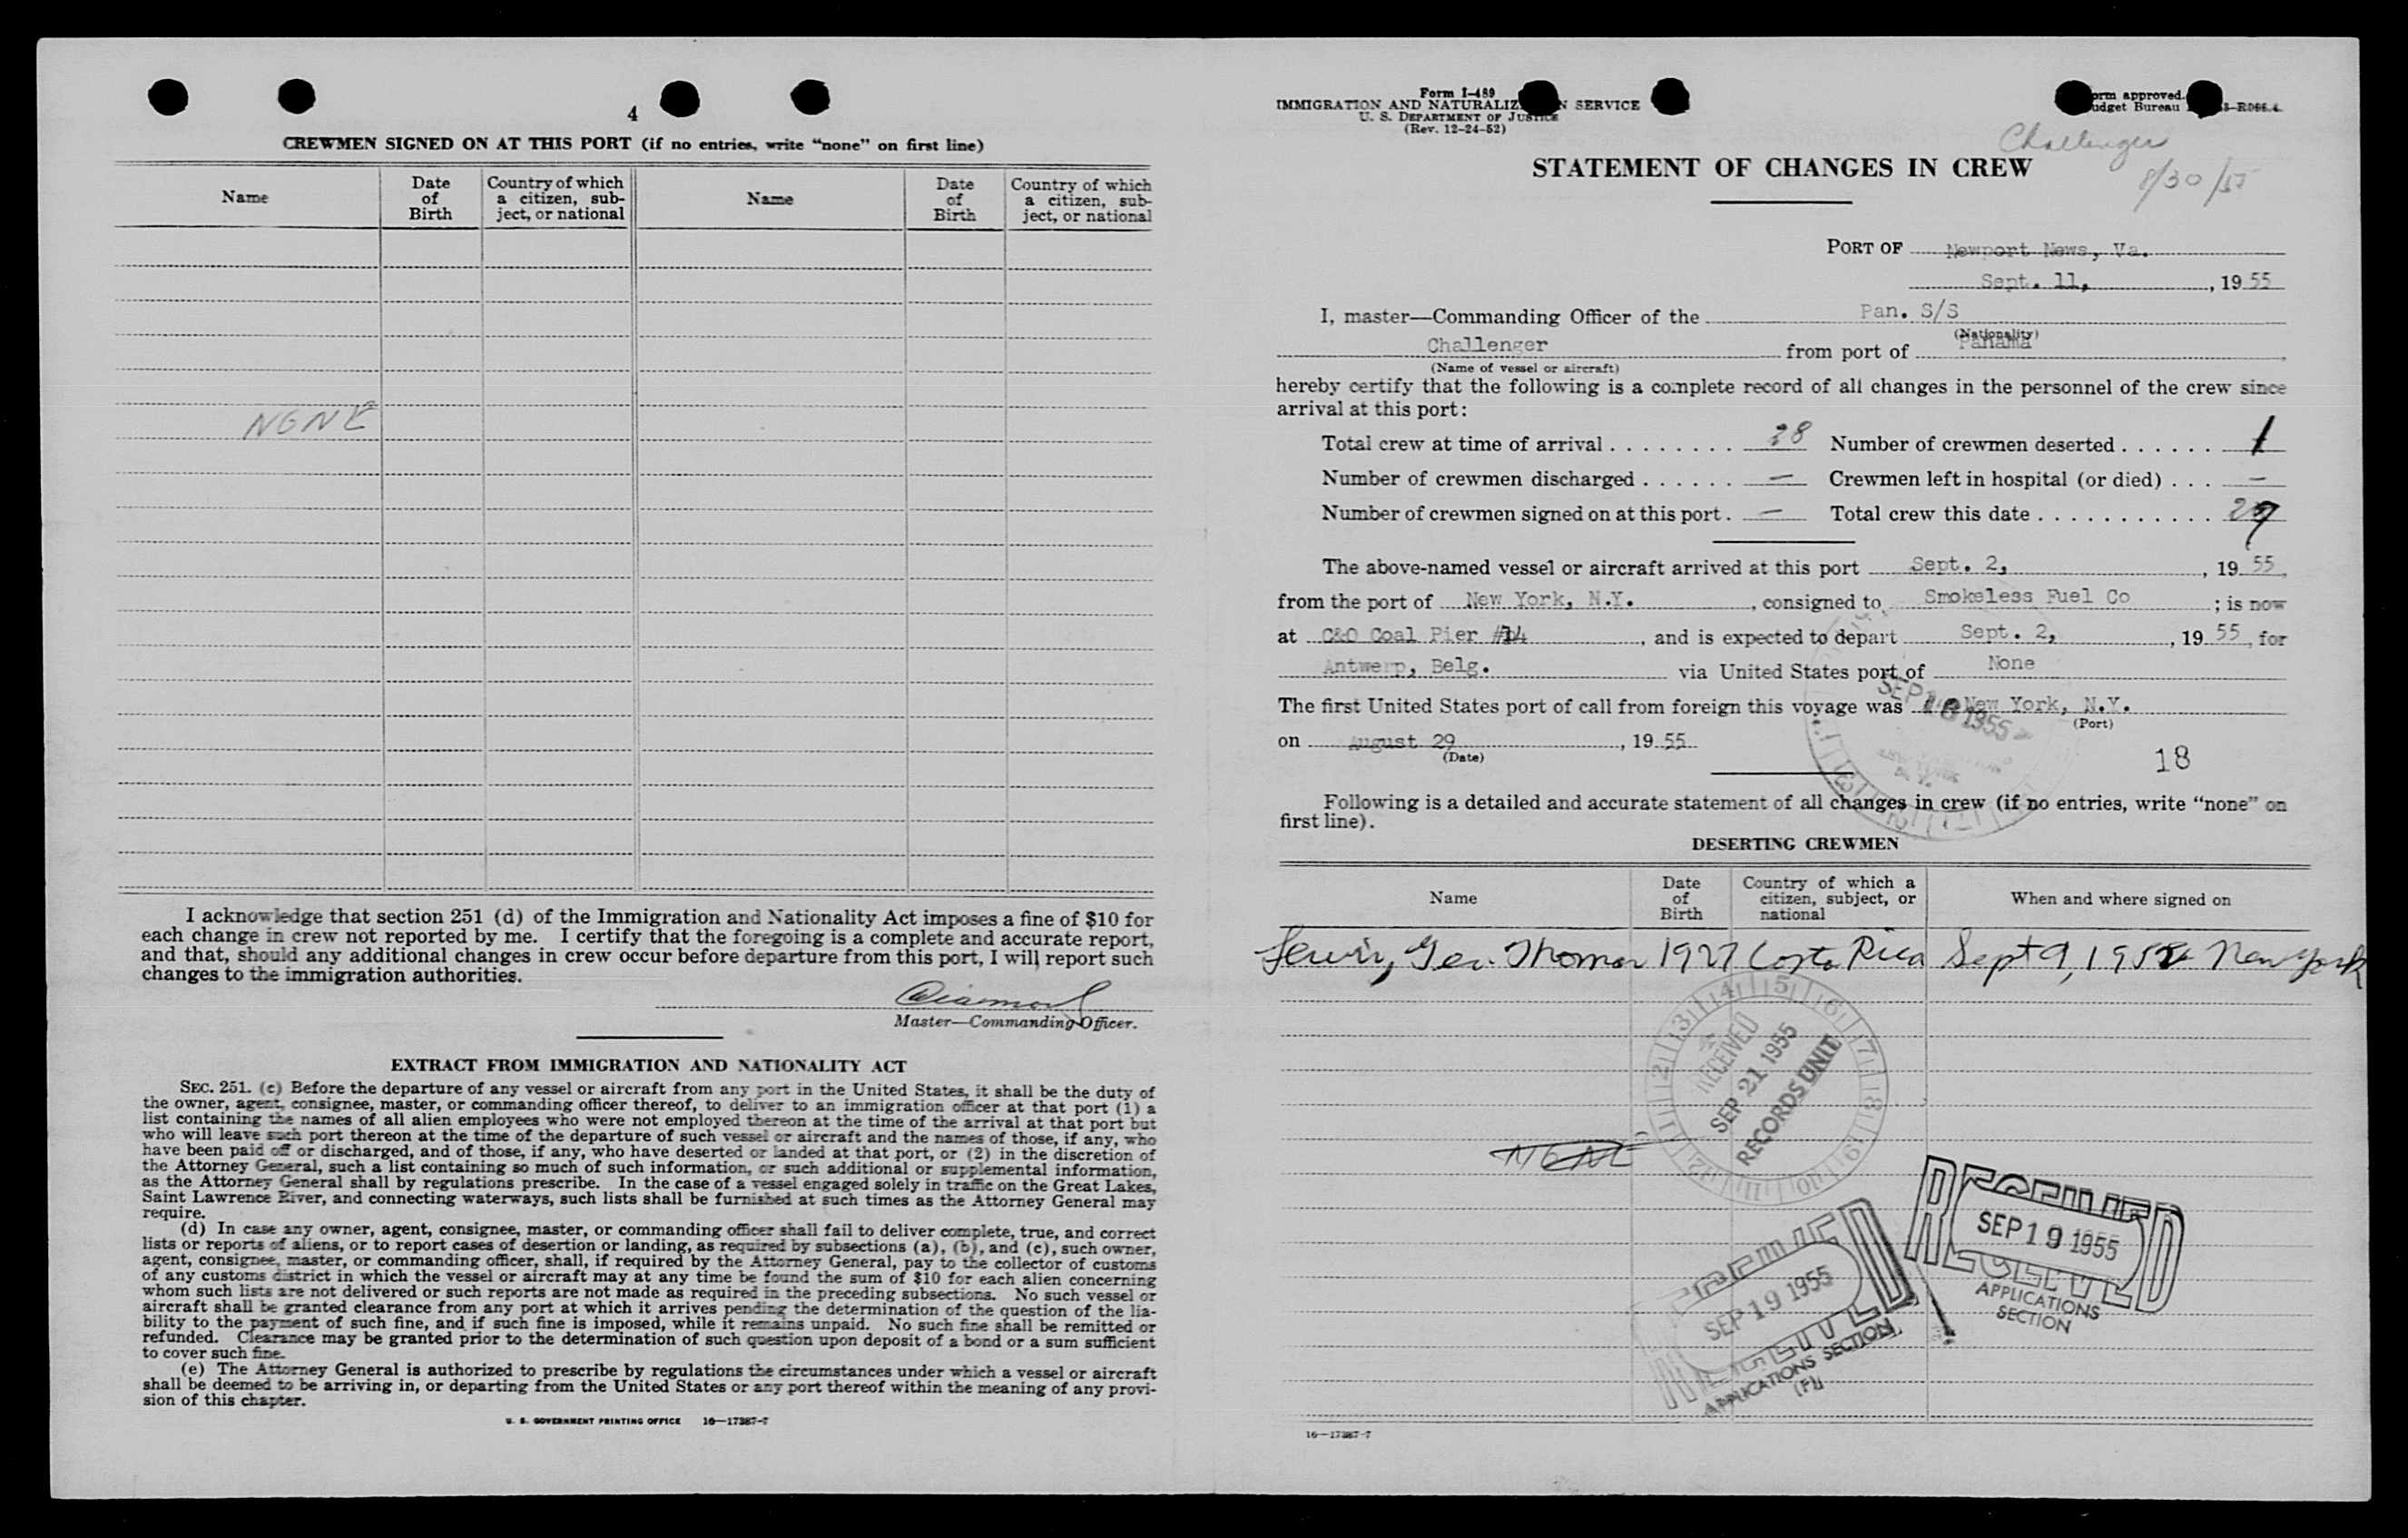 4
CREWMEN SIGNED ON AT THIS PORT (if no entries, write “none” on first line)
Name
Date of Birth
Country of which a citizen, subject, or national
Name
Date of Birth
Country of which a citizen, subject, or national
NONE
I acknowledge that section 251 (d) of the Immigration and Nationality Act imposes a fine of $10 for
each change in crew not reported by me. I certify that the foregoing is a complete and accurate report,
and that, should any additional changes in crew occur before departure from this port, I will report such
changes to the immigration authorities.
Master—Commanding Officer.
EXTRACT FROM IMMIGRATION AND NATIONALITY ACT
SEC. 251. (c) Before the departure of any vessel or aircraft from any port in the United States, it shall be the duty of
the owner, agent, consignee, master, or commanding officer thereof, to deliver to an immigration officer at that port (1) a
list containing the names of all alien employees who were not employed thereon at the time of the arrival at that port but
who will leave such port thereon at the time of the departure of such vessel or aircraft and the names of those, if any, who
have been paid off or discharged, and of those, if any, who have deserted or landed at that port, or (2) in the discretion of
the Attorney General, such a list containing so much of such information, or such additional or supplemental information,
as the Attorney General shall by regulations prescribe. In the case of a vessel engaged solely in traffic on the Great Lakes,
Saint Lawrence River, and connecting waterways, such lists shall be furnished at such times as the Attorney General may
require.
(d) In case any owner, agent, consignee, master, or commanding officer shall fail to deliver complete, true, and correct
lists or reports of aliens, or to report cases of desertion or landing, as required by subsections (a), (b), and (c), such owner,
agent, consignee, master, or commanding officer, shall, if required by the Attorney General, pay to the collector of customs
of any customs district in which the vessel or aircraft may at any time be found the sum of $10 for each alien concerning
whom such lists are not delivered or such reports are not made as required in the preceding subsections. No such vessel or
aircraft shall be granted clearance from any port at which it arrives pending the determination of the question of the lia-
bility to the payment of such fine, and if such fine is imposed, while it remains unpaid. No such fine shall be remitted or
refunded. Clearance may be granted prior to the determination of such question upon deposit of a bond or a sum sufficient
to cover such fine.
(e) The Attorney General is authorized to prescribe by regulations the circumstances under which a vessel or aircraft
shall be deemed to be arriving in, or departing from the United States or any port thereof within the meaning of any provi-
sion of this chapter.
U. S. GOVERNMENT PRINTING OFFICE 16—17387-7
Form I-489
IMMIGRATION AND NATURALIZ N SERVICE
U. S. DEPARTMENT OF JUSTICE
(Rev. 12-24-52)
orm approved.
udget Bureau
Challenger
8/30/55
STATEMENT OF CHANGES IN CREW
PORT OF Newport News, Va.
Sept. 11, , 19 55
I, master—Commanding Officer of the Pan. S/S
(Nationality)
Challenger from port of Panama
(Name of vessel or aircraft)
hereby certify that the following is a complete record of all changes in the personnel of the crew since
arrival at this port:
Total crew at time of arrival . . . . . . . . 28 Number of crewmen deserted . . . . . . 1
Number of crewmen discharged . . . . . . — Crewmen left in hospital (or died) . . . —
Number of crewmen signed on at this port . — Total crew this date . . . . . . . . . . . 27
The above-named vessel or aircraft arrived at this port Sept. 2, , 19 55,
from the port of New York, N.Y. , consigned to Smokeless Fuel Co ; is now
at C&O Coal Pier #14 , and is expected to depart Sept. 2, , 19 55, for
Antwerp, Belg. via United States port of None
The first United States port of call from foreign this voyage was New York, N.Y.
(Port)
on August 29 , 19 55
(Date)
SEP 18 1955
18
Following is a detailed and accurate statement of all changes in crew (if no entries, write “none” on
first line).
DESERTING CREWMEN
Name
Date of Birth
Country of which a citizen, subject, or national
When and where signed on
Lewis, Geo. Thomas 1927 Costa Rica Sept 9, 1955 New York
RECEIVED
SEP 21 1955
RECORDS UNIT
NONE
RECEIVED
SEP 19 1955
APPLICATIONS SECTION
RECEIVED
SEP 19 1955
APPLICATIONS
SECTION
16—17387-7